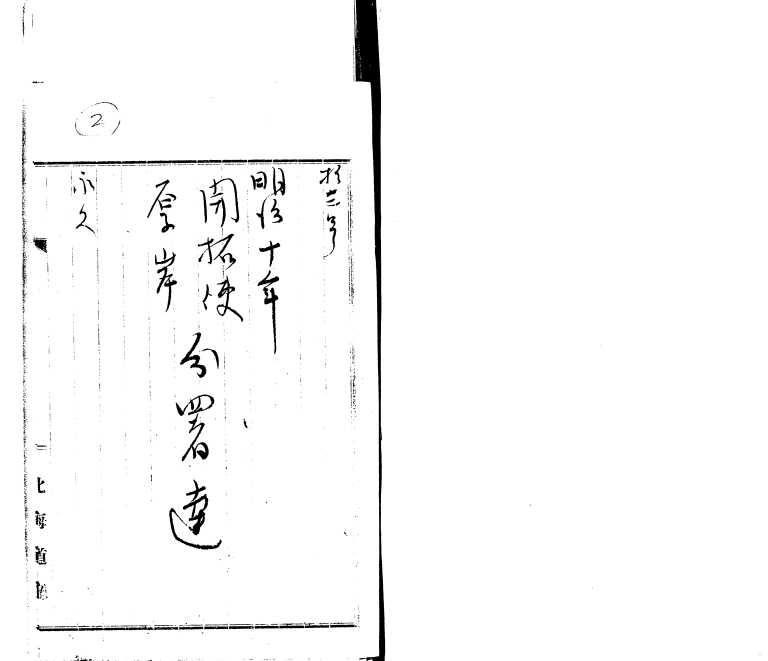 2
拾三号
明治十年
開拓使
厚岸
分署達
永久
北海道